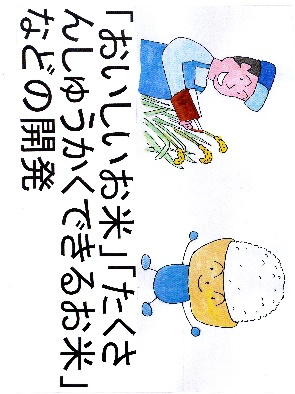 「おいしいお米」「たくさ
んしゅうかくできるお米」
などの開発